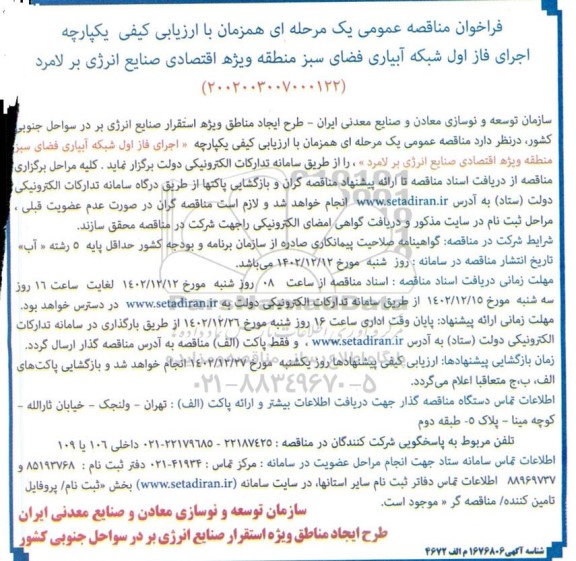 فراخوان مناقصه عمومی یک مرحله ای همزمان با ارزیابی کیفی یکپارچه
اجرای فاز اول شبکه آبیاری فضای سبز منطقه ویژه اقتصادی صنایع انرژی بر لامرد
(۲۰۰۲۰۰۳۰۰۷۰۰۰۱۲۲)
سازمان توسعه و نوسازی معادن و صنایع معدنی ایران – طرح ایجاد مناطق ویژه استقرار صنایع انرژی بر در سواحل جنوبی
کشور، درنظر دارد مناقصه عمومی یک مرحله ای همزمان با ارزیابی کیفی یکپارچه « اجرای فاز اول شبکه آبیاری فضای سبز
منطقه ویژه اقتصادی صنایع انرژی بر لامرد » ، را از طریق سامانه تدارکات الکترونیکی دولت برگزار نماید . کلیه مراحل برگزاری
مناقصه از دریافت اسناد مناقصه تا ارائه پیشنهاد مناقصه گران و بازگشایی پاکتها از طریق درگاه سامانه تدارکات الکترونیکی
دولت (ستاد) به آدرس www.setadiran.ir انجام خواهد شد و لازم است مناقصه گران در صورت عدم عضویت قبلی ،
مراحل ثبت نام در سایت مذکور و دریافت گواهی امضای الکترونیکی راجهت شرکت در مناقصه محقق سازند.
شرایط شرکت در مناقصه: گواهینامه صلاحیت پیمانکاری صادره از سازمان برنامه و بودجه کشور حداقل پایه ۵ رشته « آب»
تاریخ انتشار مناقصه در سامانه : روز شنبه مورخ ۱۴۰۲/۱۲/۱۲ می‌باشد.
مهلت زمانی دریافت اسناد مناقصه : اسناد مناقصه از ساعت ۰۸ روز شنبه مورخ ۱۴۰۲/۱۲/۱۲ لغایت ساعت ۱۶ روز
سه شنبه مورخ ۱۴۰۲/۱۲/۱۵ از طریق سامانه تدارکات الکترونیکی دولت به www.setadiran.ir در دسترس خواهد بود.
مهلت زمانی ارائه پیشنهاد: پایان وقت اداری ساعت ۱۶ روز شنبه مورخ ۱۴۰۲/۱۲/۲۶ از طریق بارگذاری در سامانه تدارکات
الکترونیکی دولت (ستاد) به آدرس www.setadiran.ir ، و فقط پاکت (الف) مناقصه به آدرس مناقصه گذار ارسال گردد.
زمان بازگشایی پیشنهادها: ارزیابی کیفی پیشنهادها روز یکشنبه مورخ ۱۴۰۲/۱۲/۲۷ انجام خواهد شد و بازگشایی پاکت‌های
الف، ب،ج متعاقبا اعلام می‌گردد.
۰۲۱-۸۸۳۴۹۶۷۰-۵
اطلاعات تماس دستگاه مناقصه گذار جهت دریافت اطلاعات بیشتر و ارائه پاکت (الف) : تهران – ولنجک – خیابان ثارالله –
کوچه مینا – پلاک ۵- طبقه دوم
تلفن مربوط به پاسخگویی شرکت کنندگان در مناقصه : ۲۲۱۸۷۴۲۵ - ۰۲۱-۲۲۱۷۹۶۸۵ داخلی ۱۰۶ یا ۱۰۹
اطلاعات تماس سامانه ستاد جهت انجام مراحل عضویت در سامانه : مرکز تماس : ۰۲۱-۴۱۹۳۴ دفتر ثبت نام : ۸۵۱۹۳۷۶۸ و
۸۸۹۶۹۷۳۷ اطلاعات تماس دفاتر ثبت نام سایر استانها، در سایت سامانه (www.setadiran.ir) بخش «ثبت نام/ پروفایل
تامین کننده/ مناقصه گر « موجود است.
سازمان توسعه و نوسازی معادن و صنایع معدنی ایران
طرح ایجاد مناطق ویژه استقرار صنایع انرژی بر در سواحل جنوبی کشور
شناسه آگهی ۱۶۷۶۸۰۶ م الف ۴۶۷۲